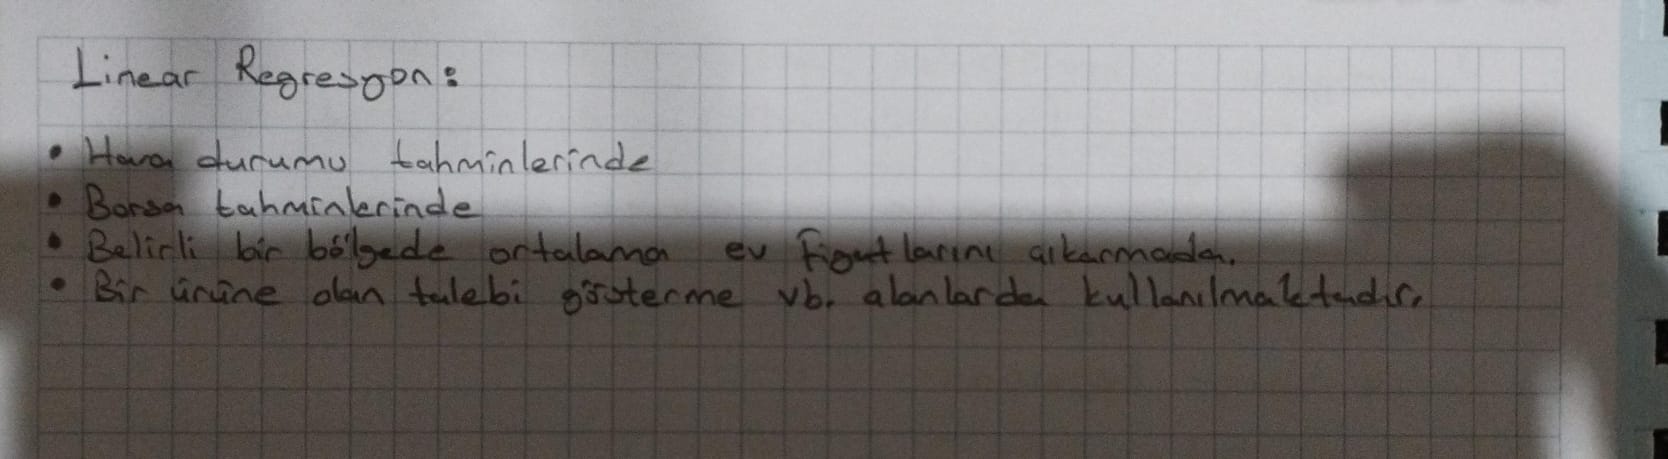 Linear Regresyon:
• Hava durumu tahminlerinde
• Borsa tahminlerinde
• Belirli bir bölgede ortalama ev fiyatlarını çıkarmada.
• Bir ürüne olan talebi gösterme vb. alanlarda kullanılmaktadır.